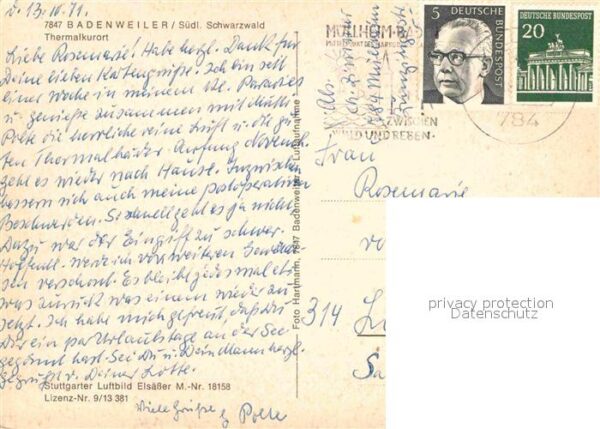 7847 BADENWEILER / Südl. Schwarzwald
Thermalkurort
d. 13.10.71.
Liebe Rosemarie! Habe herzl. Dank für
Deine lieben Kartengrüße. Ich bin seit
einer Woche in meinem alten Paradies
u. genieße zusammen mit
Polte die herrliche reine Luft u. die guten
Thermalbäder. Anfang November
geht es wieder nach Hause. Inzwischen
bessern sich auch meine postoperativen
Beschwerden. So schnell geht es ja nicht.
Dazu war der Eingriff zu schwer.
Hoffentl. werde ich vor weiteren
verschont. Es bleibt jedesmal etwas
zurück was einem wieder zu-
setzt. Ich habe mich gefreut, daß Du
ein paar Urlaubstage an der See
gegönnt hast. Sei Du u. Dein Mann herzl.
gegrüßt v. Deiner Lotte.
Stuttgarter Luftbild Elsäßer M.-Nr. 18158
Lizenz-Nr. 9/13 381
Viele Grüße v. Polte
Foto Hartmann, 7847 Badenweiler · Luftaufnahme
MÜLLHEIM-BADEN
ZWISCHEN
WALD UND REBEN
Abs.
784 Müllheim
5 DEUTSCHE BUNDESPOST
DEUTSCHE BUNDESPOST
20
784
Frau
Rosemarie
314
privacy protection
Datenschutz